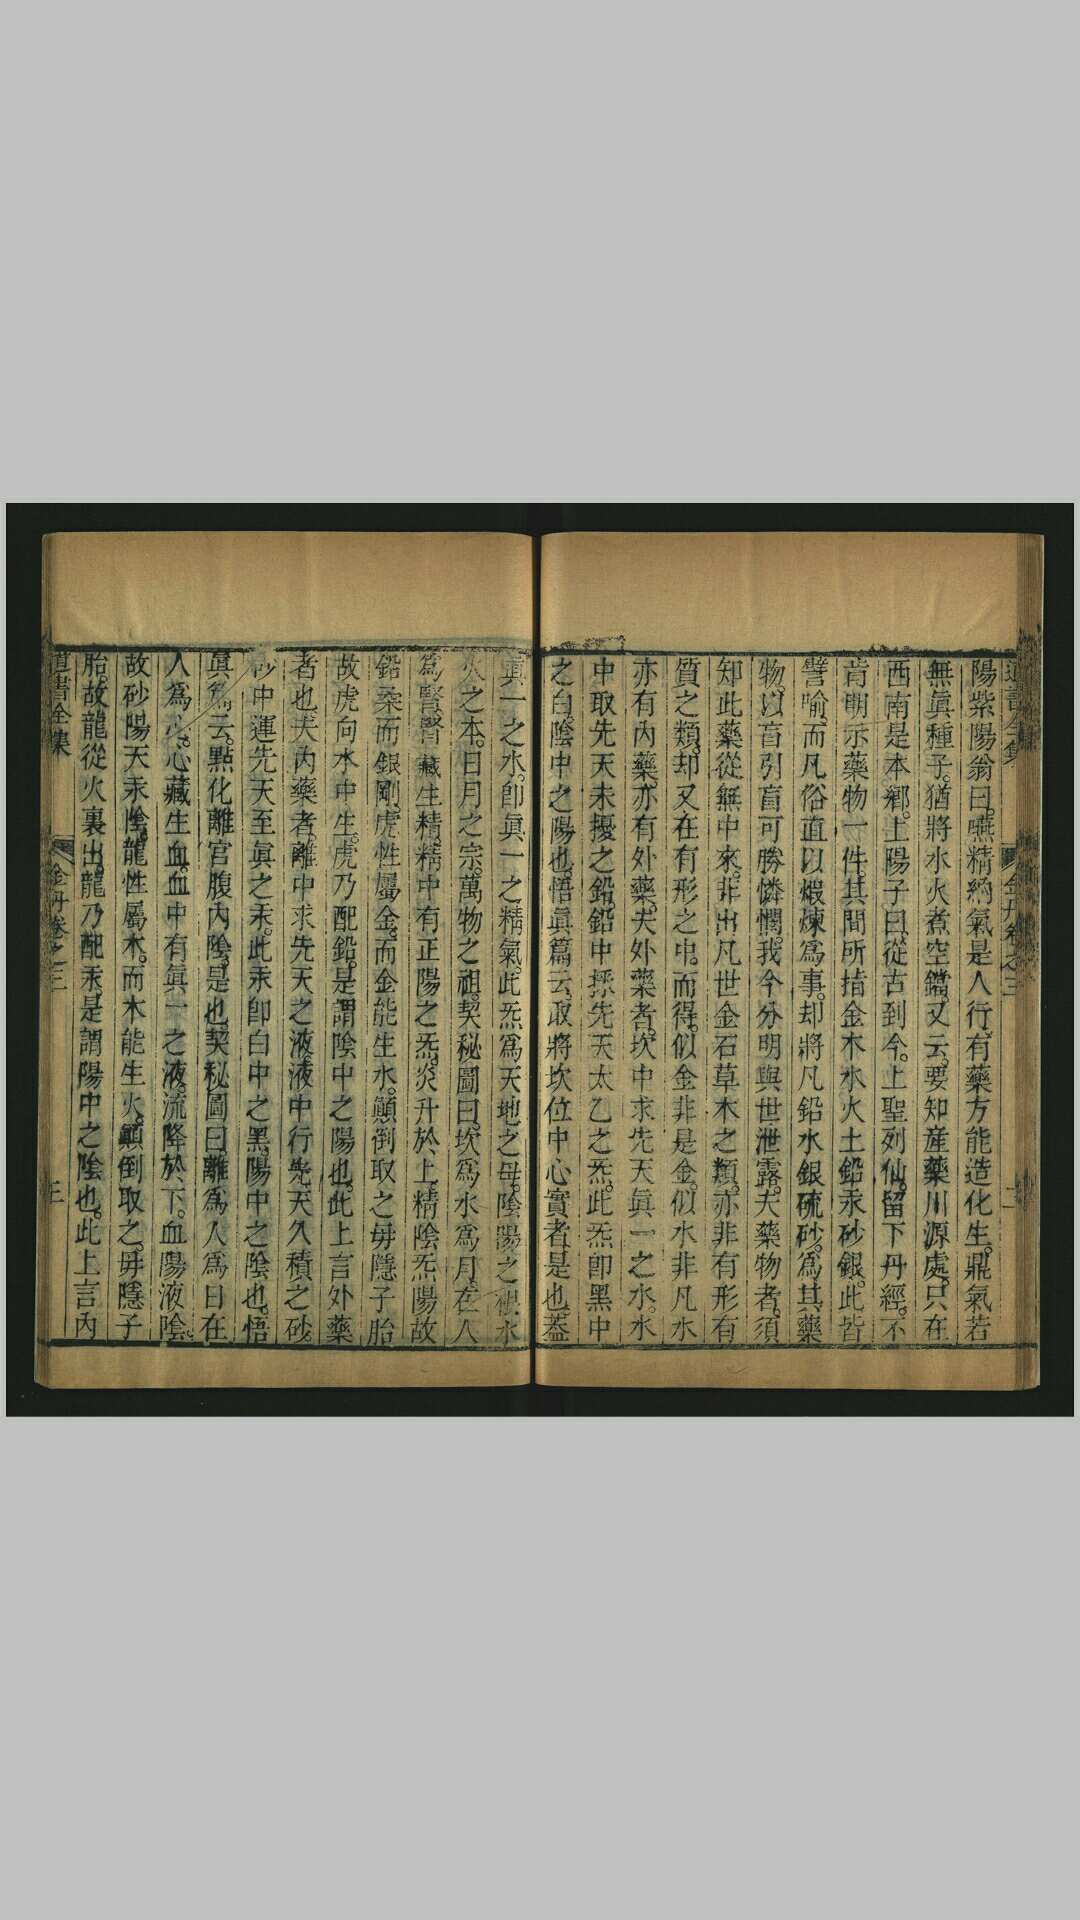 道書全集 金丹卷之三 二
陽紫陽翁曰嚥精納氣是人行有藥方能造化生鼎氣若
無眞種子猶將水火煮空鐺又云要知産藥川源處只在
西南是本鄉上陽子曰從古到今上聖列仙留下丹經不
肯明示藥物一件其間所指金木水火土鉛汞砂銀此皆
譬喻而凡俗直以煆煉爲事却將凡鉛水銀硫砂爲其藥
物以盲引盲可勝憐憫我今分明與世泄露夫藥物者須
知此藥從無中來非出凡世金石草木之類亦非有形有
質之類却又在有形之中而得似金非是金似水非凡水
亦有內藥亦有外藥夫外藥者坎中求先天眞一之水水
中取先天未擾之鉛鉛中採先天太乙之炁此炁卽黑中
之白陰中之陽也悟眞篇云取將坎位中心實者是也葢
眞一之水卽眞一之精氣此炁爲天地之母陰陽之根水
火之本日月之宗萬物之祖契秘圖曰坎爲水爲月在人
爲腎腎藏生精精中有正陽之炁炎升於上精陰炁陽故
鉛柔而銀剛虎性屬金而金能生水顚倒取之毋隱子胎
故虎向水中生虎乃配鉛是謂陰中之陽也此上言外藥
者也夫內藥者離中求先天之液液中行先天久積之砂
砂中運先天至眞之汞此汞卽白中之黑陽中之陰也悟
眞篇云點化離宮腹內陰是也契秘圖曰離爲火爲日在
人爲心心藏生血血中有眞一之液流降於下血陽液陰
故砂陽天汞陰龍性屬木而木能生火顚倒取之毋隱子
胎故龍從火裏出龍乃配汞是謂陽中之陰也此上言內
道書全集 金丹卷之三 三